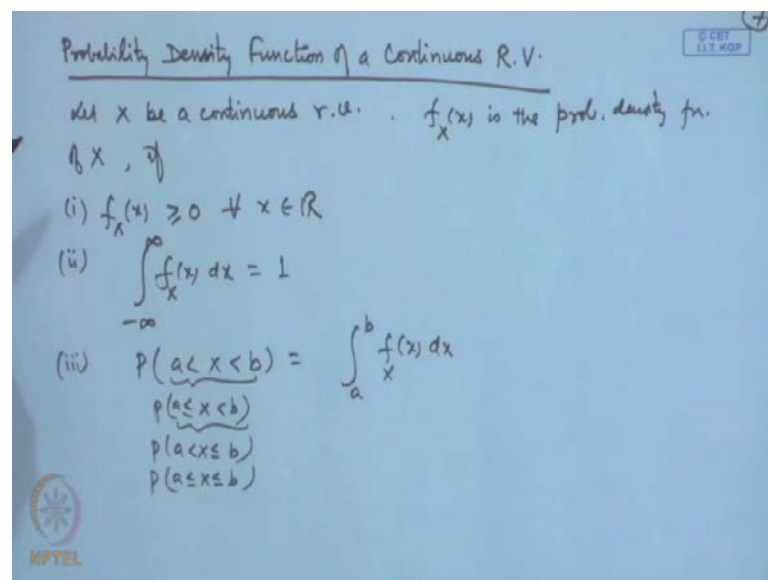 7
© CET
I.I.T. KGP
Probability Density Function of a Continuous R.V.
Let X be a continuous r.v. . f_X(x) is the prob. density fn.
of X , if
(i) f_X(x) ≥ 0 ∀ x ∈ ℝ
(ii) ∫_{-∞}^{∞} f_X(x) dx = 1
(iii) P(a < X < b) = ∫_a^b f_X(x) dx
P(a ≤ X < b)
P(a < X ≤ b)
P(a ≤ X ≤ b)
NPTEL